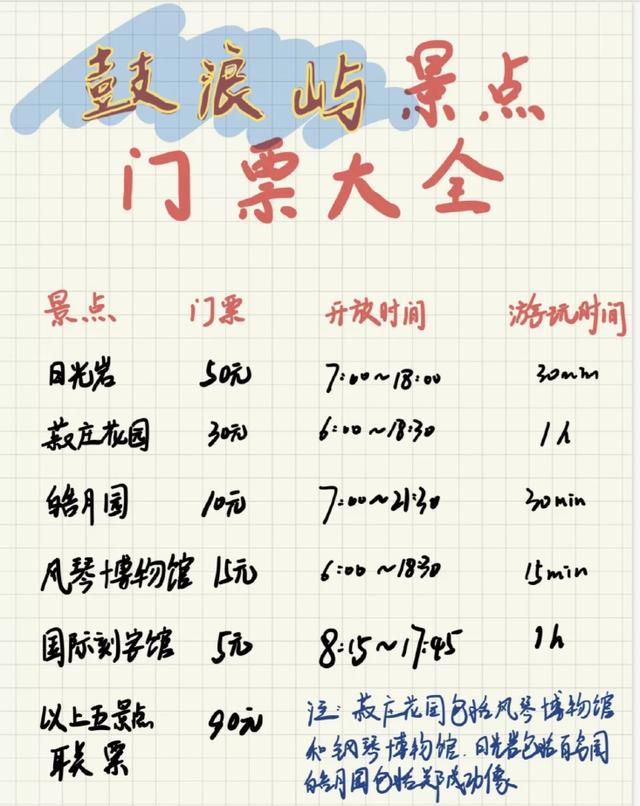 鼓浪屿景点
门票大全
景点 门票 开放时间 游玩时间
日光岩 50元 7:00~18:00 30min
菽庄花园 30元 6:00~18:30 1h
皓月园 10元 7:00~21:30 30min
风琴博物馆 15元 6:00~18:30 15min
国际刻字馆 5元 8:15~17:45 1h
以上五景点 90元
联票
注:菽庄花园包括风琴博物馆
和钢琴博物馆.日光岩包括百鸟园
皓月园包括郑成功像